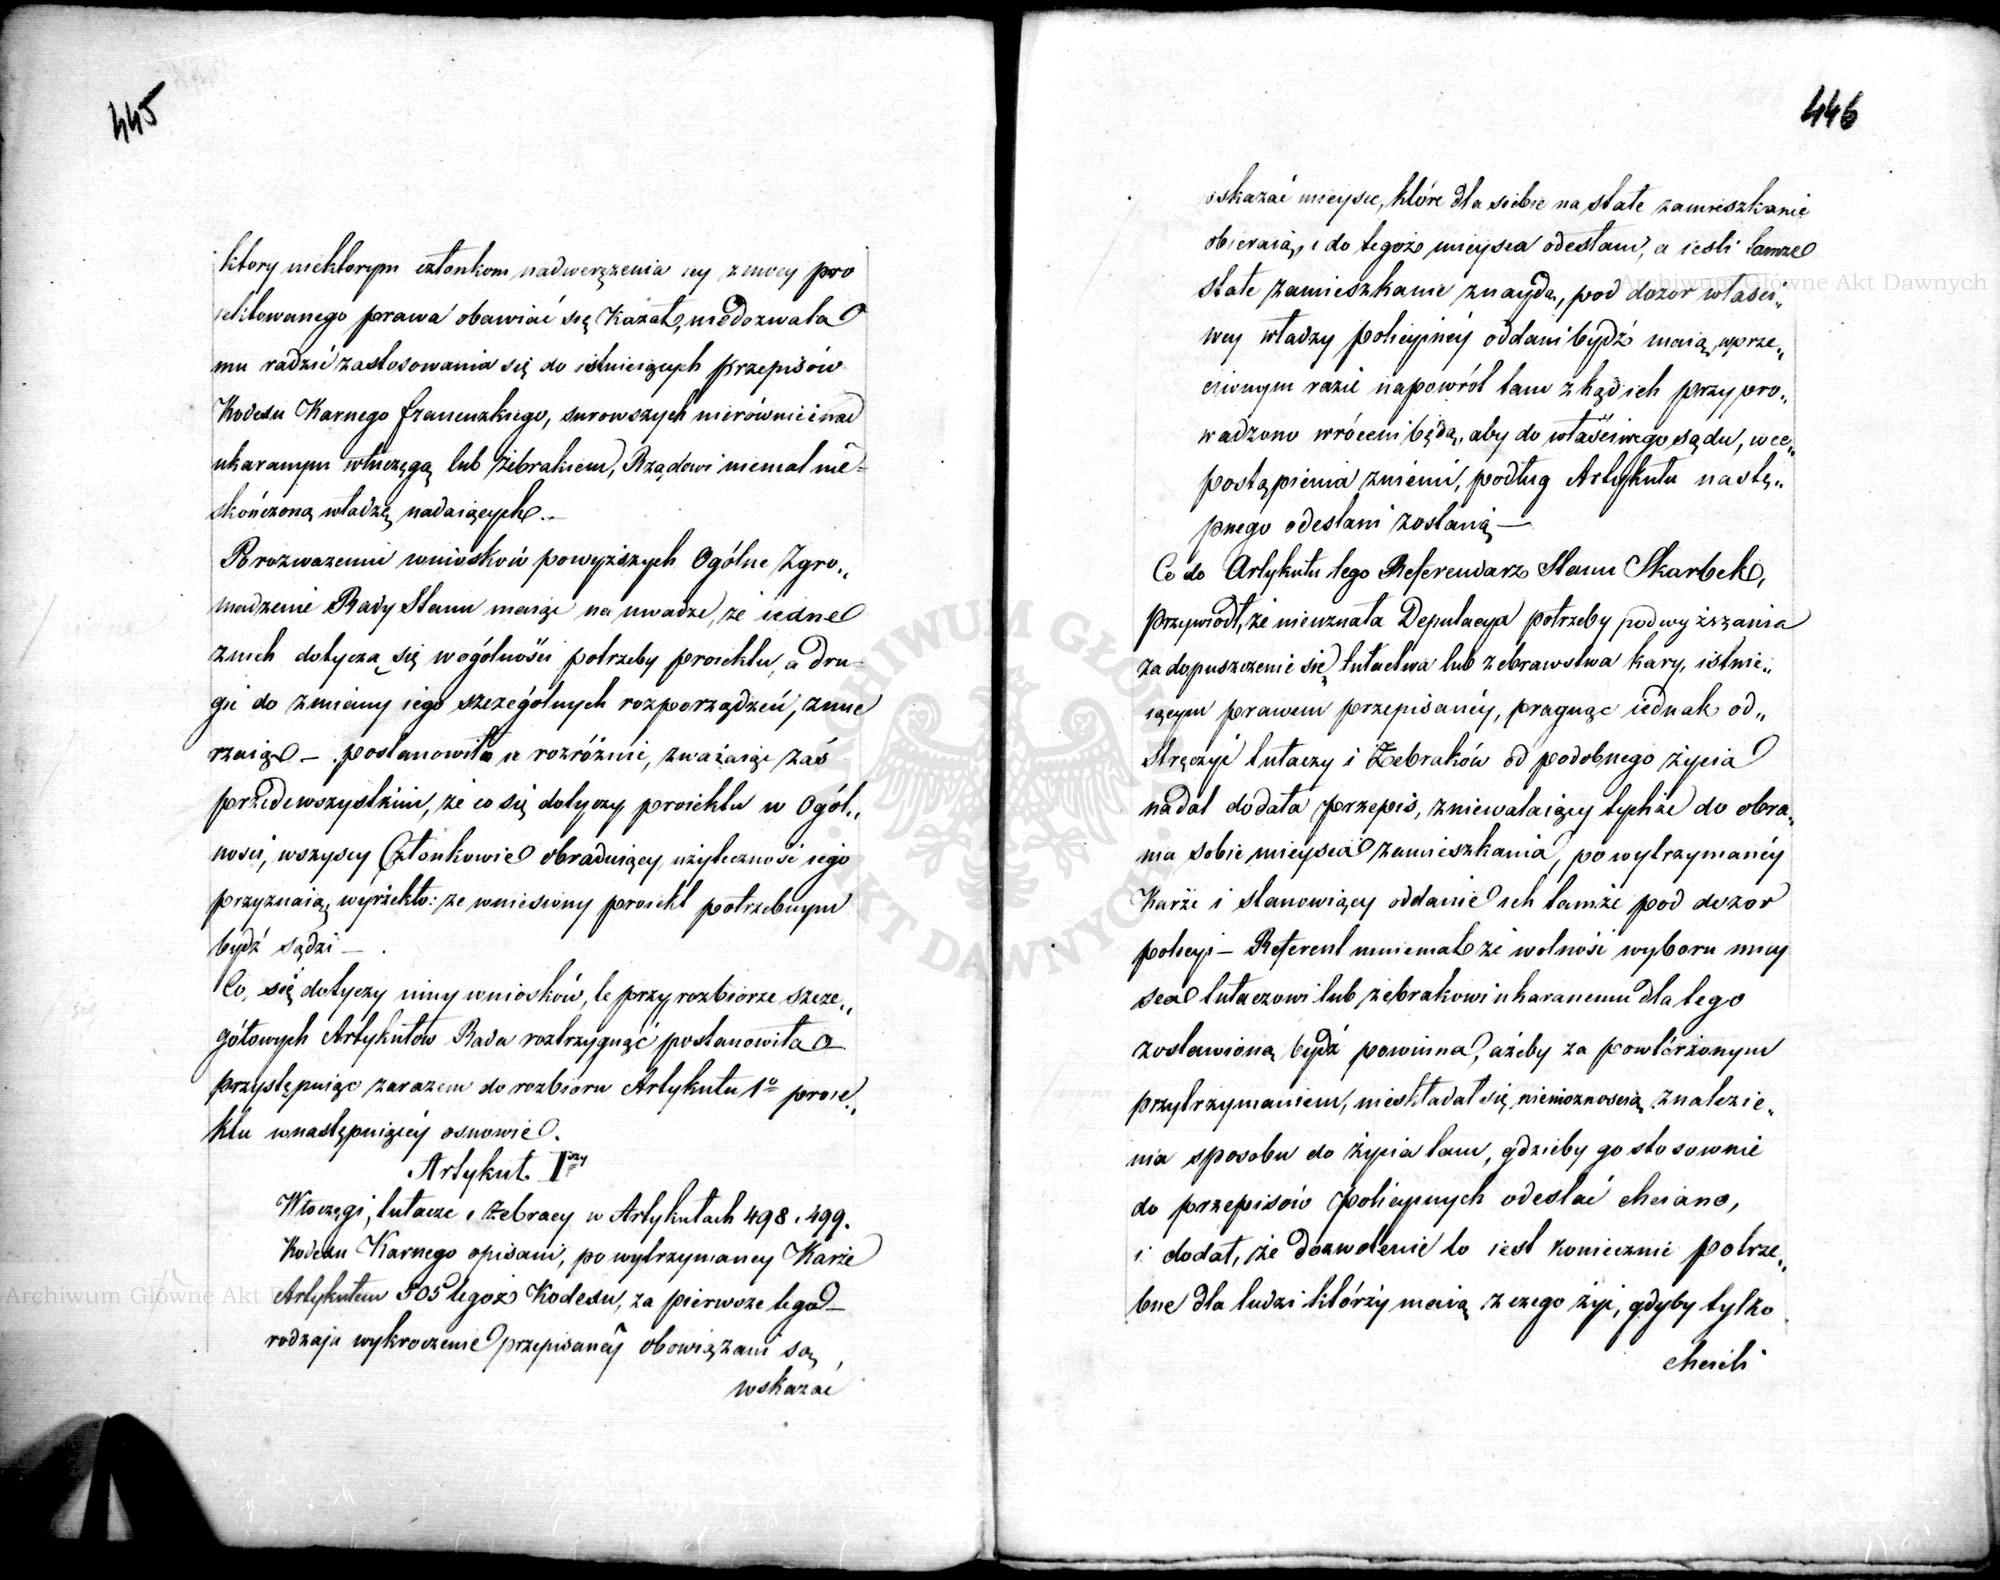 445
ktory niektorym członkom nadwerężenia iey z mocy pro
iektowanego prawa obawiać się kazał, niedozwala
mu radzić zastosowania się do istnieiących przepisów
Kodexu Karnego francuzkiego, surowszych nierównie i nad
ukaranym włóczęgą lub żebrakiem, Rządowi niemal nie-
skończoną władzę nadaiących.
Po rozważeniu wniosków powyższych Ogólne Zgro„
madzenie Rady Stanu maiąc na uwadze, że iedne
z nich dotyczą się wogólności potrzeby proiektu, a dru-
gie do zmiany iego szczególnych rozporządzeń, zmie
rzaią — postanowiło ie rozróżnić, zważaiąc zaś
przedewszystkim, że co się dotyczy proiektu w Ogól„
ności, wszyscy Członkowie obraduiący, użyteczność iego
przyznaią, wyrzekło: że wniesiony proiekt potrzebnym
bydź sądzi —
Co, się dotyczy inny wniosków, te przy rozbiorze szcze„
gółowych Artykułów Rada roztrzygnąć postanowiła
przystępuiąc zarazem do rozbioru Artykułu 1º proie„
ktu wnastępuiącéy osnowie.
Artykuł Iszy
Włoczęgi, tułacze i żebracy w Artykułach 498 i 499.
Kodexu Karnego opisani, po wytrzymaney Karze
Artykułem 505 tegoż Kodexu, za pierwsze tego
rodzaju wykroczenie przepisanéy obowiązani są
wskazać
446
wskazać mieysce, które dla siebie na stałe zamieszkanie
obieraią, i do tegoż mieysca odesłani, a ieśli tamże
stałe zamieszkanie znaydą, pod dozor właści„
wey władzy policyinéy oddani bydź maią, wprze„
ciwnym razie napowrót tam zkąd ich przypro„
wadzono wróceni będą, aby do właściwego sądu, w ce„
postąpienia z niemi, podług Artykułu nastę„
pnego odesłani zostanią —
Co do Artykułu tego Referendarz Stanu Skarbek,
przywiodł, że nieuznała Deputacya potrzeby podwyższania
za dopuszczenie się tułactwa lub żebrawstwa kary, istnie„
iącym prawem przepisanéy, pragnąc iednak od„
stręczyć tułaczy i Żebraków od podobnego życia
nadal dodała przepis, zniewalaiący tychże do obra„
nia sobie mieysca zamieszkania, po wytrzymanéy
Karze i stanowiący oddanie ich tamże pod dozor
policyi — Referent mniemał że wolność wyboru miey
sca tułaczowi lub żebrakowi ukaranemu dla tego
zostawioną bydź powinna, ażeby za powtórzonym
przytrzymaniem, nieskładał się niemożnością znalezie„
nia sposobu do życia tam, gdzieby go stosownie
do przepisów policyinych odesłać chciano,
i dodał, że dozwolenie to iest koniecznie potrze„
bne dla ludzi którzy maią z czego żyć, gdyby tylko
chcieli
Archiwum Główne Akt Dawnych
Archiwum Główne Akt D
ARCHIWUM GŁÓWNE AKT DAWNYCH